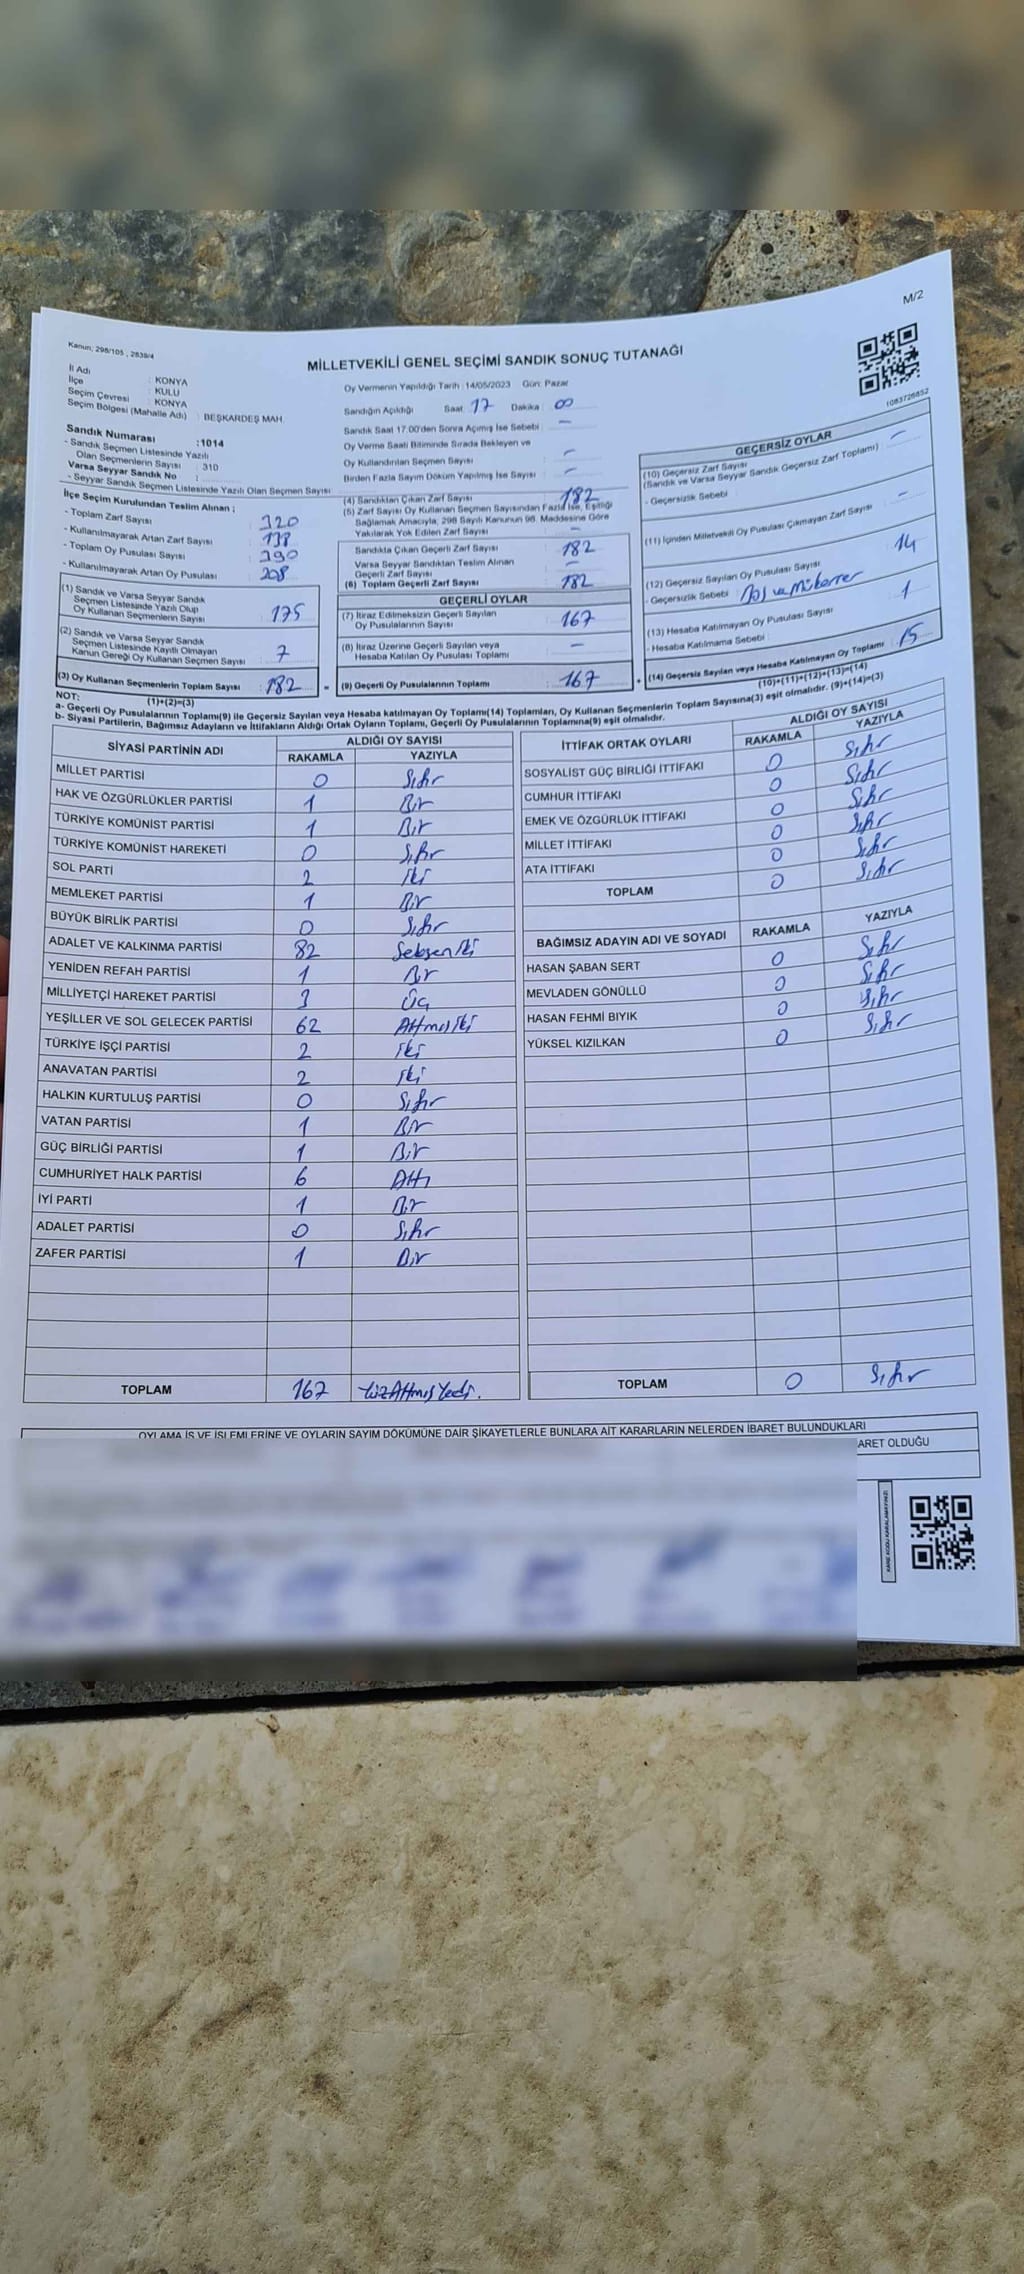 M/2
Kanun; 298/105 , 2839/4
MİLLETVEKİLİ GENEL SEÇİMİ SANDIK SONUÇ TUTANAĞI
1083726852
İl Adı : KONYA
İlçe : KULU
Seçim Çevresi : KONYA
Seçim Bölgesi (Mahalle Adı) : BEŞKARDEŞ MAH.
Sandık Numarası :1014
- Sandık Seçmen Listesinde Yazılı
Olan Seçmenlerin Sayısı : 310
Varsa Seyyar Sandık No :
- Seyyar Sandık Seçmen Listesinde Yazılı Olan Seçmen Sayısı
İlçe Seçim Kurulundan Teslim Alınan ;
- Toplam Zarf Sayısı : 320
- Kullanılmayarak Artan Zarf Sayısı : 138
- Toplam Oy Pusulası Sayısı : 390
- Kullanılmayarak Artan Oy Pusulası : 208
(1) Sandık ve Varsa Seyyar Sandık
Seçmen Listesinde Yazılı Olup
Oy Kullanan Seçmenlerin Sayısı : 175
(2) Sandık ve Varsa Seyyar Sandık
Seçmen Listesinde Kayıtlı Olmayan
Kanun Gereği Oy Kullanan Seçmen Sayısı : 7
(3) Oy Kullanan Seçmenlerin Toplam Sayısı : 182
(1)+(2)=(3)
Oy Vermenin Yapıldığı Tarih :14/05/2023 Gün: Pazar
Sandığın Açıldığı Saat 17 Dakika : 00
Sandık Saat 17.00'den Sonra Açımış İse Sebebi : –
Oy Verme Saati Bitiminde Sırada Bekleyen ve
Oy Kullandırılan Seçmen Sayısı : –
Birden Fazla Sayım Döküm Yapılmış İse Sayısı : –
(4) Sandıktan Çıkan Zarf Sayısı : 182
(5) Zarf Sayısı Oy Kullanan Seçmen Sayısından Fazla İse, Eşitliği
Sağlamak Amacıyla, 298 Sayılı Kanunun 98. Maddesine Göre
Yakılarak Yok Edilen Zarf Sayısı : –
Sandıkta Çıkan Geçerli Zarf Sayısı : 182
Varsa Seyyar Sandıktan Teslim Alınan
Geçerli Zarf Sayısı : –
(6) Toplam Geçerli Zarf Sayısı : 182
GEÇERLİ OYLAR
(7) İtiraz Edilmeksizin Geçerli Sayılan
Oy Pusulalarının Sayısı : 167
(8) İtiraz Üzerine Geçerli Sayılan veya
Hesaba Katılan Oy Pusulası Toplamı : –
= (9) Geçerli Oy Pusulalarının Toplamı : 167
GEÇERSİZ OYLAR
(10) Geçersiz Zarf Sayısı
(Sandık ve Varsa Seyyar Sandık Geçersiz Zarf Toplamı) : –
- Geçersizlik Sebebi :
(11) İçinden Milletvekili Oy Pusulası Çıkmayan Zarf Sayısı : –
(12) Geçersiz Sayılan Oy Pusulası Sayısı : 14
- Geçersizlik Sebebi : Boş ve Mükerrer
(13) Hesaba Katılmayan Oy Pusulası Sayısı : 1
- Hesaba Katılmama Sebebi :
+ (14) Geçersiz Sayılan veya Hesaba Katılmayan Oy Toplamı : 15
(10)+(11)+(12)+(13)=(14)
NOT:
a- Geçerli Oy Pusulalarının Toplamı(9) ile Geçersiz Sayılan veya Hesaba Katılmayan Oy Toplamı(14) Toplamları, Oy Kullanan Seçmenlerin Toplam Sayısına(3) eşit olmalıdır. (9)+(14)=(3)
b- Siyasi Partilerin, Bağımsız Adayların ve İttifakların Aldığı Ortak Oyların Toplamı, Geçerli Oy Pusulalarının Toplamına(9) eşit olmalıdır.
SİYASİ PARTİNİN ADI ALDIĞI OY SAYISI
RAKAMLA YAZIYLA
MİLLET PARTİSİ 0 Sıfır
HAK VE ÖZGÜRLÜKLER PARTİSİ 1 Bir
TÜRKİYE KOMÜNİST PARTİSİ 1 Bir
TÜRKİYE KOMÜNİST HAREKETİ 0 Sıfır
SOL PARTİ 2 iki
MEMLEKET PARTİSİ 1 Bir
BÜYÜK BİRLİK PARTİSİ 0 Sıfır
ADALET VE KALKINMA PARTİSİ 82 Seksen iki
YENİDEN REFAH PARTİSİ 1 Bir
MİLLİYETÇİ HAREKET PARTİSİ 3 Üç
YEŞİLLER VE SOL GELECEK PARTİSİ 62 Altmış iki
TÜRKİYE İŞÇİ PARTİSİ 2 iki
ANAVATAN PARTİSİ 2 iki
HALKIN KURTULUŞ PARTİSİ 0 Sıfır
VATAN PARTİSİ 1 Bir
GÜÇ BİRLİĞİ PARTİSİ 1 Bir
CUMHURİYET HALK PARTİSİ 6 Altı
İYİ PARTİ 1 Bir
ADALET PARTİSİ 0 Sıfır
ZAFER PARTİSİ 1 Bir
TOPLAM 167 YüzAltmışYedi.
İTTİFAK ORTAK OYLARI ALDIĞI OY SAYISI
RAKAMLA YAZIYLA
SOSYALİST GÜÇ BİRLİĞİ İTTİFAKI 0 Sıfır
CUMHUR İTTİFAKI 0 Sıfır
EMEK VE ÖZGÜRLÜK İTTİFAKI 0 Sıfır
MİLLET İTTİFAKI 0 Sıfır
ATA İTTİFAKI 0 Sıfır
TOPLAM 0 Sıfır
BAĞIMSIZ ADAYIN ADI VE SOYADI RAKAMLA YAZIYLA
HASAN ŞABAN SERT 0 Sıfır
MEVLADEN GÖNÜLLÜ 0 Sıfır
HASAN FEHMİ BIYIK 0 Sıfır
YÜKSEL KIZILKAN 0 Sıfır
TOPLAM 0 Sıfır
OYLAMA İŞ VE İŞLEMLERİNE VE OYLARIN SAYIM DÖKÜMÜNE DAİR ŞİKAYETLERLE BUNLARA AİT KARARLARIN NELERDEN İBARET BULUNDUKLARI
ARET OLDUĞU